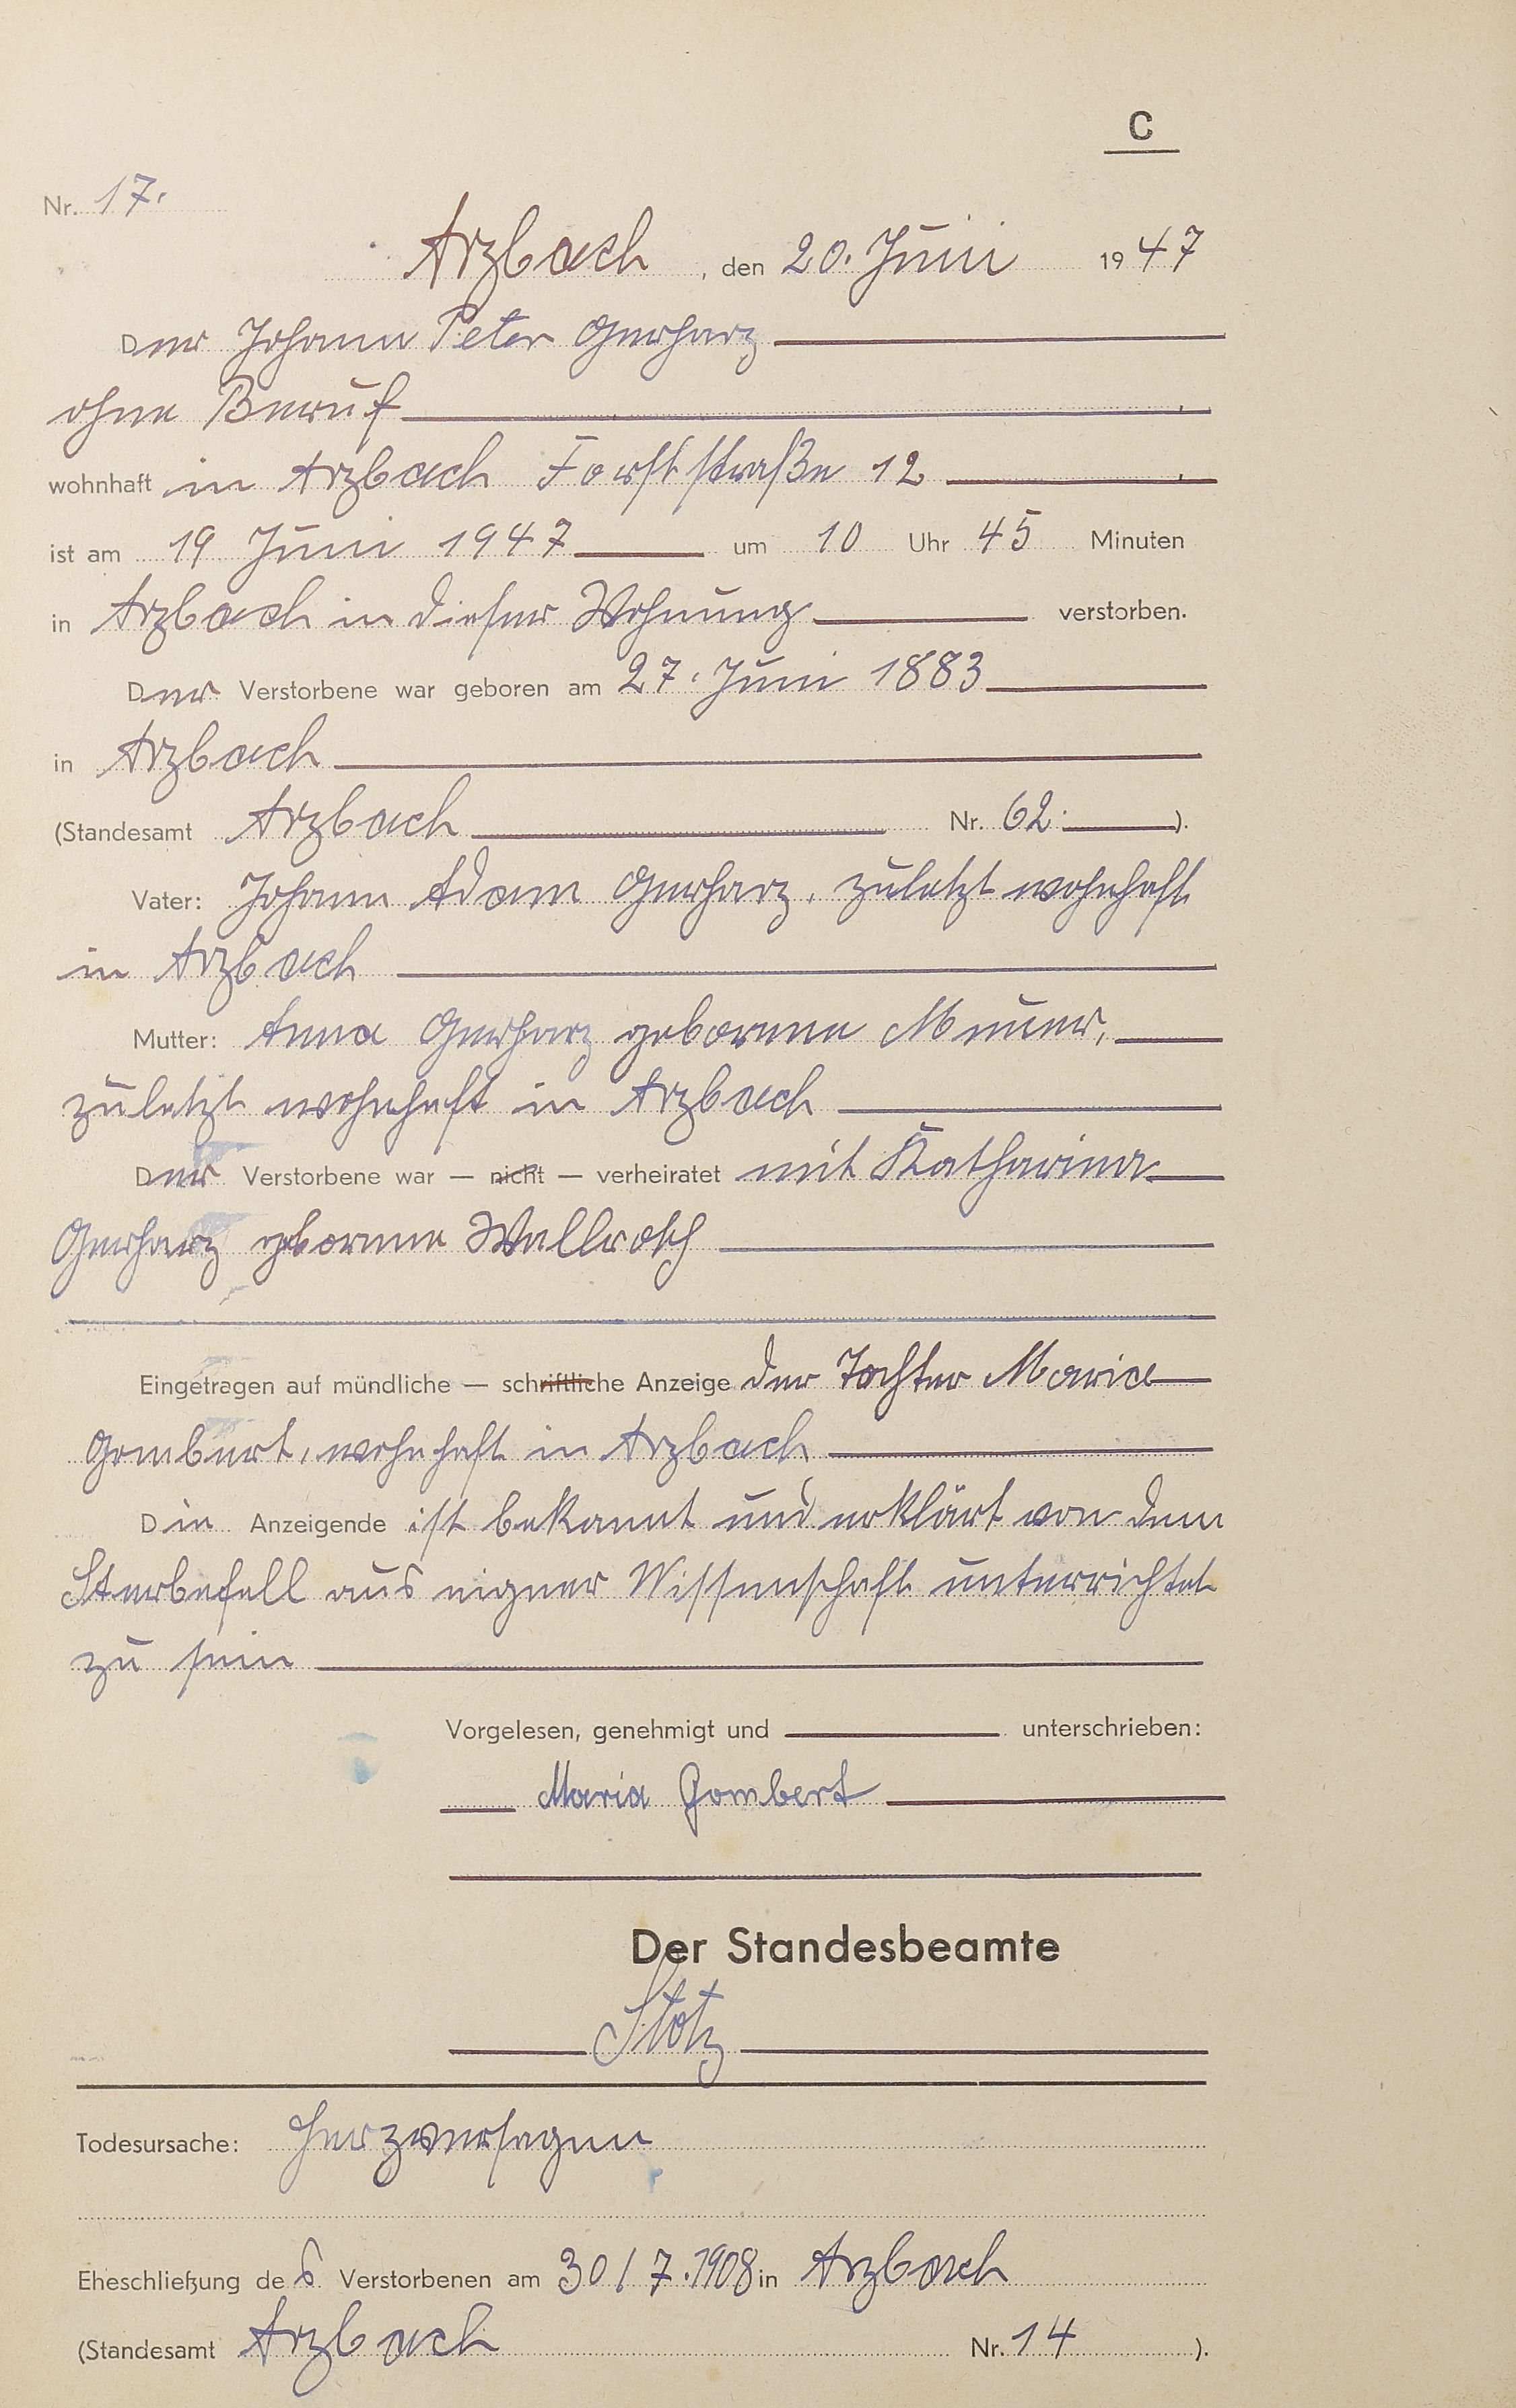 C
Nr. 17.
Arzbach, den 20. Juni 1947
Der Johann Peter Gerharz
ohne Beruf
wohnhaft in Arzbach Forststraße 12
ist am 19 Juni 1947 um 10 Uhr 45 Minuten
in Arzbach in dieser Wohnung verstorben.
Der Verstorbene war geboren am 27. Juni 1883
in Arzbach
(Standesamt Arzbach Nr. 62.).
Vater: Johann Adam Gerharz, zuletzt wohnhaft
in Arzbach
Mutter: Anna Gerharz geborene Meuer,
zuletzt wohnhaft in Arzbach
Der Verstorbene war — nicht — verheiratet mit Katharina
Gerharz geborene Wallroth
Eingetragen auf mündliche — schriftliche Anzeige der Tochter Maria
Gombert, wohnhaft in Arzbach
Die Anzeigende ist bekannt und erklärt von dem
Sterbefall aus eigner Wissenschaft unterrichtet
zu sein
Vorgelesen, genehmigt und unterschrieben:
Maria Gombert
Der Standesbeamte
Stotz
Todesursache: Herzversagen
Eheschließung des Verstorbenen am 30/7.1908 in Arzbach
(Standesamt Arzbach Nr. 14).